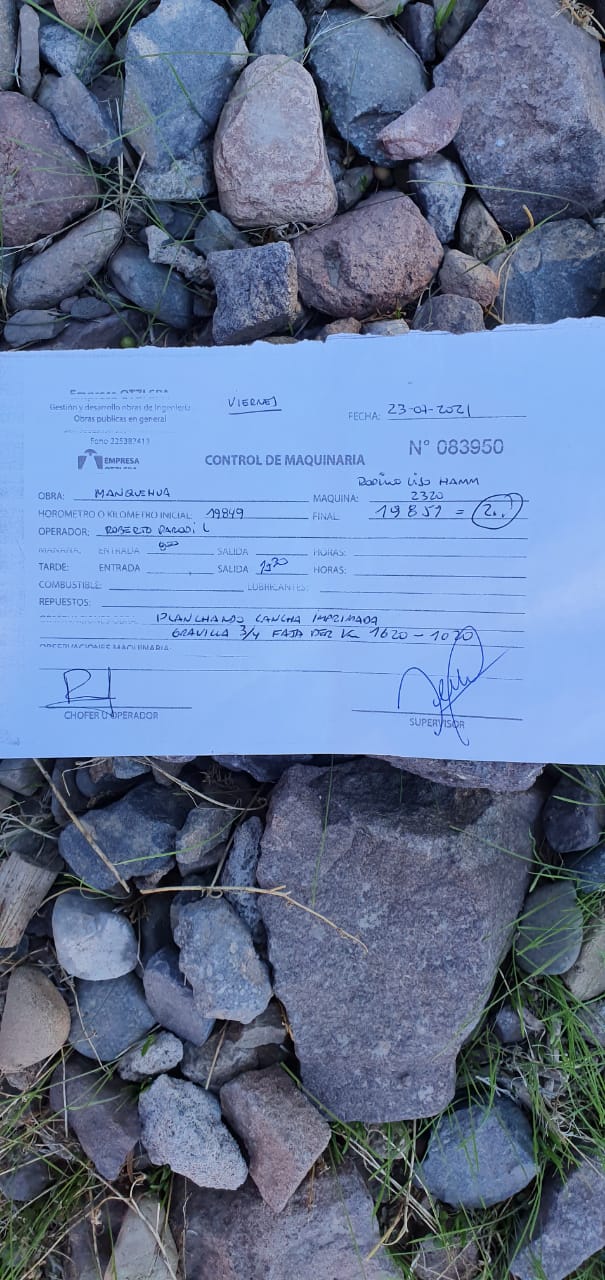 Empresa OTZI SPA
Gestión y desarrollo obras de Ingeniería
Obras publicas en general
VIERNES
FECHA: 23-07-2021
Fono 225387413
EMPRESA
CONTROL DE MAQUINARIA
N° 083950
OBRA: MANQUEHUA
MAQUINA: RODILLO LISO HAMM
2320
HOROMETRO O KILOMETRO INICIAL: 19849 FINAL 19851 = 2
OPERADOR: ROBERTO L
MAÑANA: ENTRADA 8:00 SALIDA HORAS:
TARDE: ENTRADA SALIDA HORAS:
COMBUSTIBLE: LUBRICANTES:
REPUESTOS:
OBSERVACIONES OBRA: PLANCHANDO CANCHA IMPRIMADA
GRAVILLA 3/4 FAJA DER
OBSERVACIONES MAQUINARIA:
CHOFER U OPERADOR
SUPERVISOR